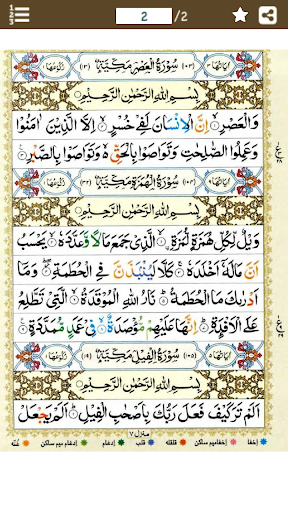 2 /2
اٰيَاتُهَا ٣ (١٠٣) سُوْرَةُ الْعَصْرِ مَكِّيَّةٌ (١٣) رُكُوْعُهَا ١
بِسْمِ اللّٰهِ الرَّحْمٰنِ الرَّحِيْمِ
وَالْعَصْرِ ۙ اِنَّ الْاِنْسَانَ لَفِيْ خُسْرٍ ۙ اِلَّا الَّذِيْنَ اٰمَنُوْا
وَعَمِلُوا الصّٰلِحٰتِ وَتَوَاصَوْا بِالْحَقِّ ۙ وَتَوَاصَوْا بِالصَّبْرِ
اٰيَاتُهَا ٩ (١٠٤) سُوْرَةُ الْهُمَزَةِ مَكِّيَّةٌ (٣٢) رُكُوْعُهَا ١
بِسْمِ اللّٰهِ الرَّحْمٰنِ الرَّحِيْمِ
وَيْلٌ لِّكُلِّ هُمَزَةٍ لُّمَزَةِ ۙ الَّذِيْ جَمَعَ مَالًا وَّعَدَّدَهٗ ۙ يَحْسَبُ
اَنَّ مَالَهٗٓ اَخْلَدَهٗ ۚ كَلَّا لَيُنْۢبَذَنَّ فِي الْحُطَمَةِ ۖ وَمَآ
اَدْرٰىكَ مَا الْحُطَمَةُ ؕ نَارُ اللّٰهِ الْمُوْقَدَةُ ۙ الَّتِيْ تَطَّلِعُ
عَلَى الْاَفْـِٕدَةِ ؕ اِنَّهَا عَلَيْهِمْ مُّؤْصَدَةٌ ۙ فِيْ عَمَدٍ مُّمَدَّدَةٍ
اٰيَاتُهَا ٥ (١٠٥) سُوْرَةُ الْفِيْلِ مَكِّيَّةٌ (١٩) رُكُوْعُهَا ١
بِسْمِ اللّٰهِ الرَّحْمٰنِ الرَّحِيْمِ
اَلَمْ تَرَ كَيْفَ فَعَلَ رَبُّكَ بِاَصْحٰبِ الْفِيْلِ ؕ اَلَمْ يَجْعَلْ
منزل ٧
إخفا إخفا ميم ساكن قلقله قلب إدغام إدغام ميم ساكن غنّه